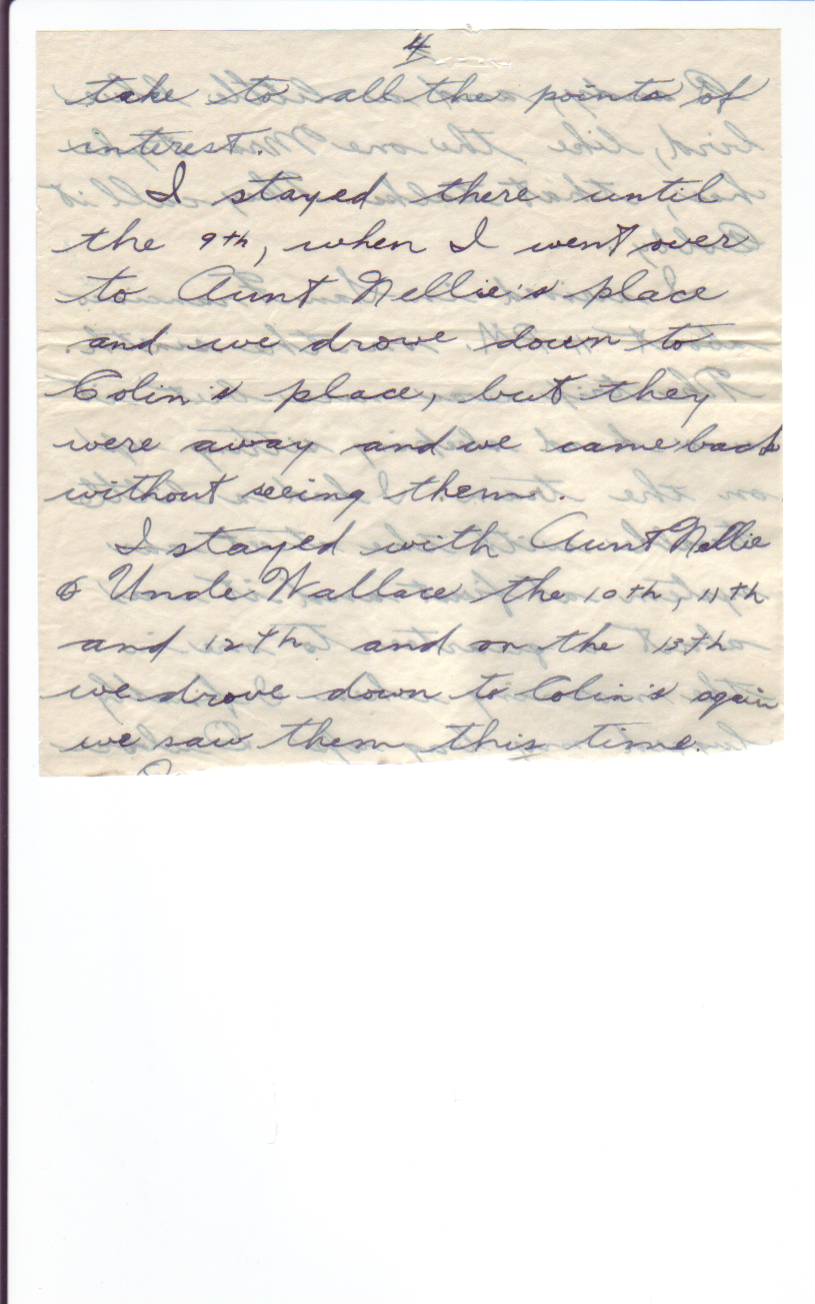 4
take to all the points of
interest.
I stayed there until
the 9th, when I went over
to Aunt Nellie's place
and we drove down to
Colin's place, but they
were away and we came back
without seeing them.
I stayed with Aunt Nellie
& Uncle Wallace the 10th, 11th
and 12th and on the 13th
we drove down to Colin's again
we saw them this time.